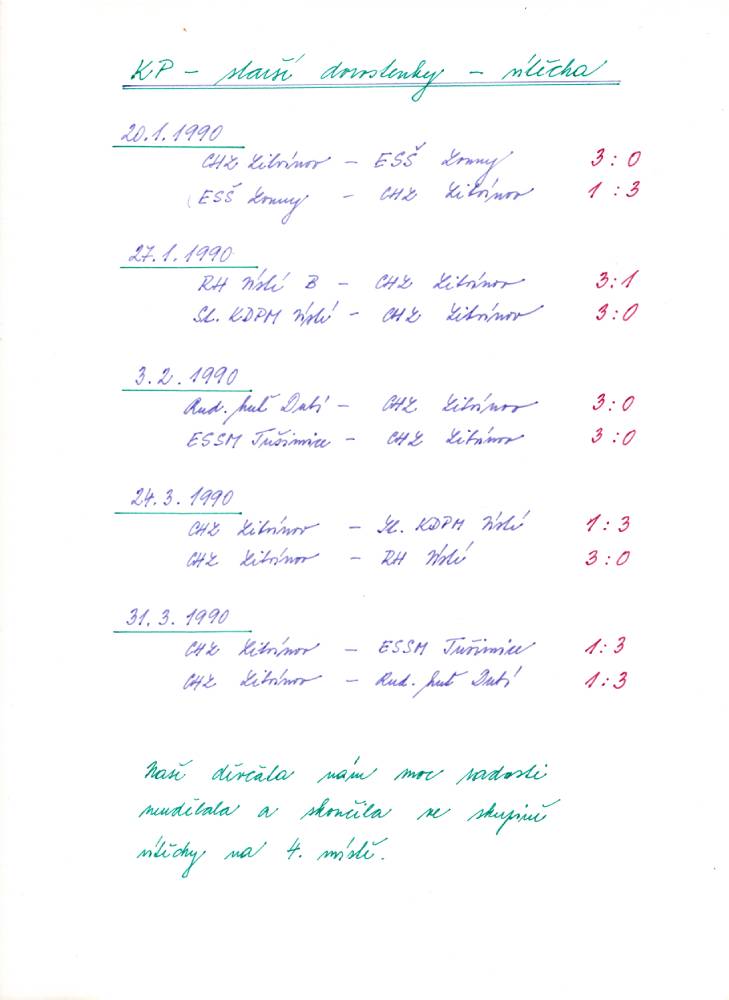 KP - starší dorostenky - útěcha
20.1.1990
CHZ Litvínov - ESŠ Louny 3:0
ESŠ Louny - CHZ Litvínov 1:3
27.1.1990
RH Ústí B - CHZ Litvínov 3:1
Sl. KDPM Ústí - CHZ Litvínov 3:0
3.2.1990
Rud. huť Dubí - CHZ Litvínov 3:0
ESSM Tušimice - CHZ Litvínov 3:0
24.3.1990
CHZ Litvínov - Sl. KDPM Ústí 1:3
CHZ Litvínov - RH Ústí 3:0
31.3.1990
CHZ Litvínov - ESSM Tušimice 1:3
CHZ Litvínov - Rud. huť Dubí 1:3
Naše děvčala nám moc radosti
neudělala a skončila ve skupině
útěchy na 4. místě.